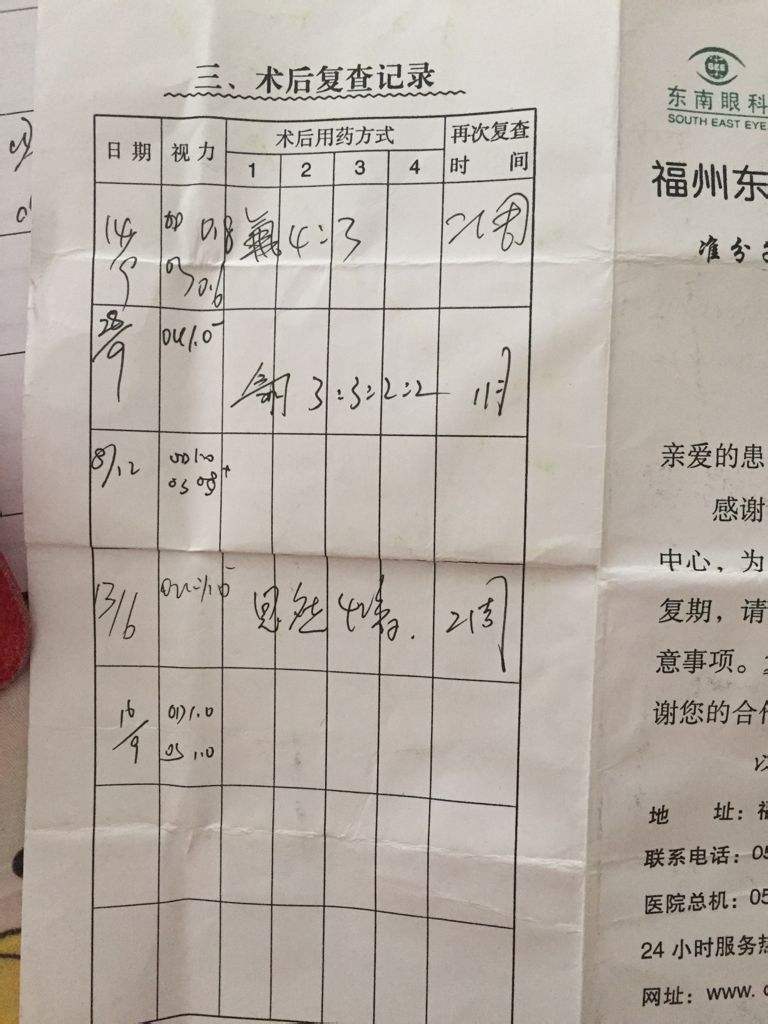 三、术后复查记录
日期 视力 术后用药方式 再次复查时间
1 2 3 4
14/9 OD 0.8 氟 4:3 2周
OS 0.6
28/9 OU 1.0⁻
3:3:2:2 1月
8/12 OD 1.0
OS 0.8⁺
13/6 4次 2周
16/9 OD 1.0
OS 1.0
东南眼科
SOUTH EAST EYE
福州东
准分
亲爱的患
感谢
中心，为
复期，请
意事项。
谢您的合作
以
地 址：福
联系电话：05
医院总机：05
24小时服务热
网址：www.